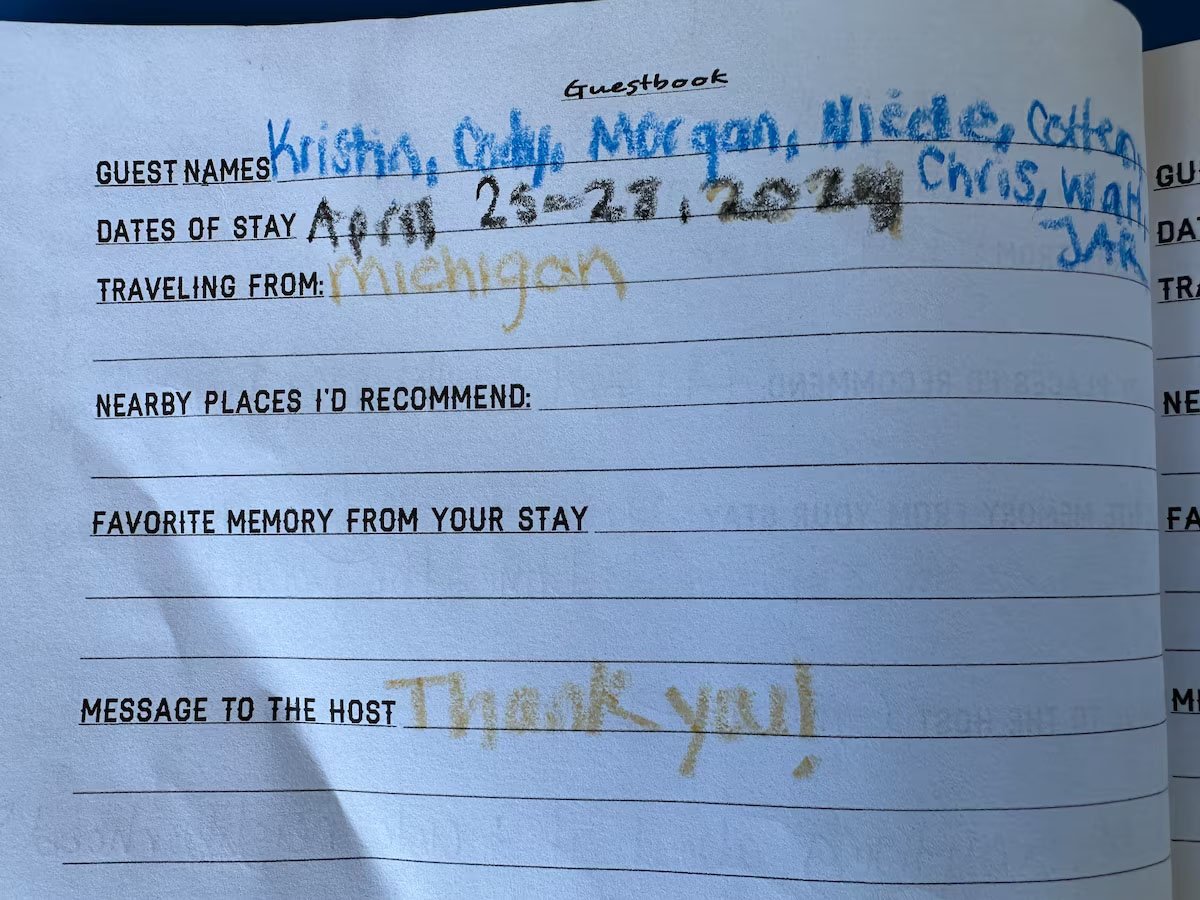 Guestbook
GUEST NAMES Kristin, Cody, Morgan, Nicole, Colten,
Chris,
DATES OF STAY April 25-27, 2024
JAR
TRAVELING FROM: michigan
NEARBY PLACES I'D RECOMMEND:
FAVORITE MEMORY FROM YOUR STAY
MESSAGE TO THE HOST Thank you!
GU
DA
TRA
NE
FA
ME